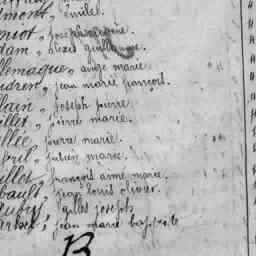 mont, émile.
niot, joseph
dan, alexis guillaume.
llemagne, ange marie.
udren, jean marie françois.
lain, joseph pierre.
illet, pierre marie.
llic, pierre marie.
bril, julien marie.
illet, françois aimé marie.
bault, jean louis olivier.
gilles joseph
jean marie baptiste
B